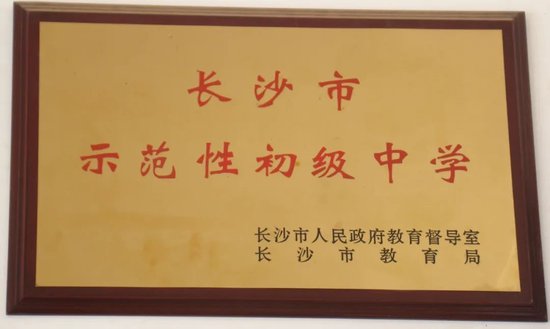 长沙市
示范性初级中学
长沙市人民政府教育督导室
长沙市教育局